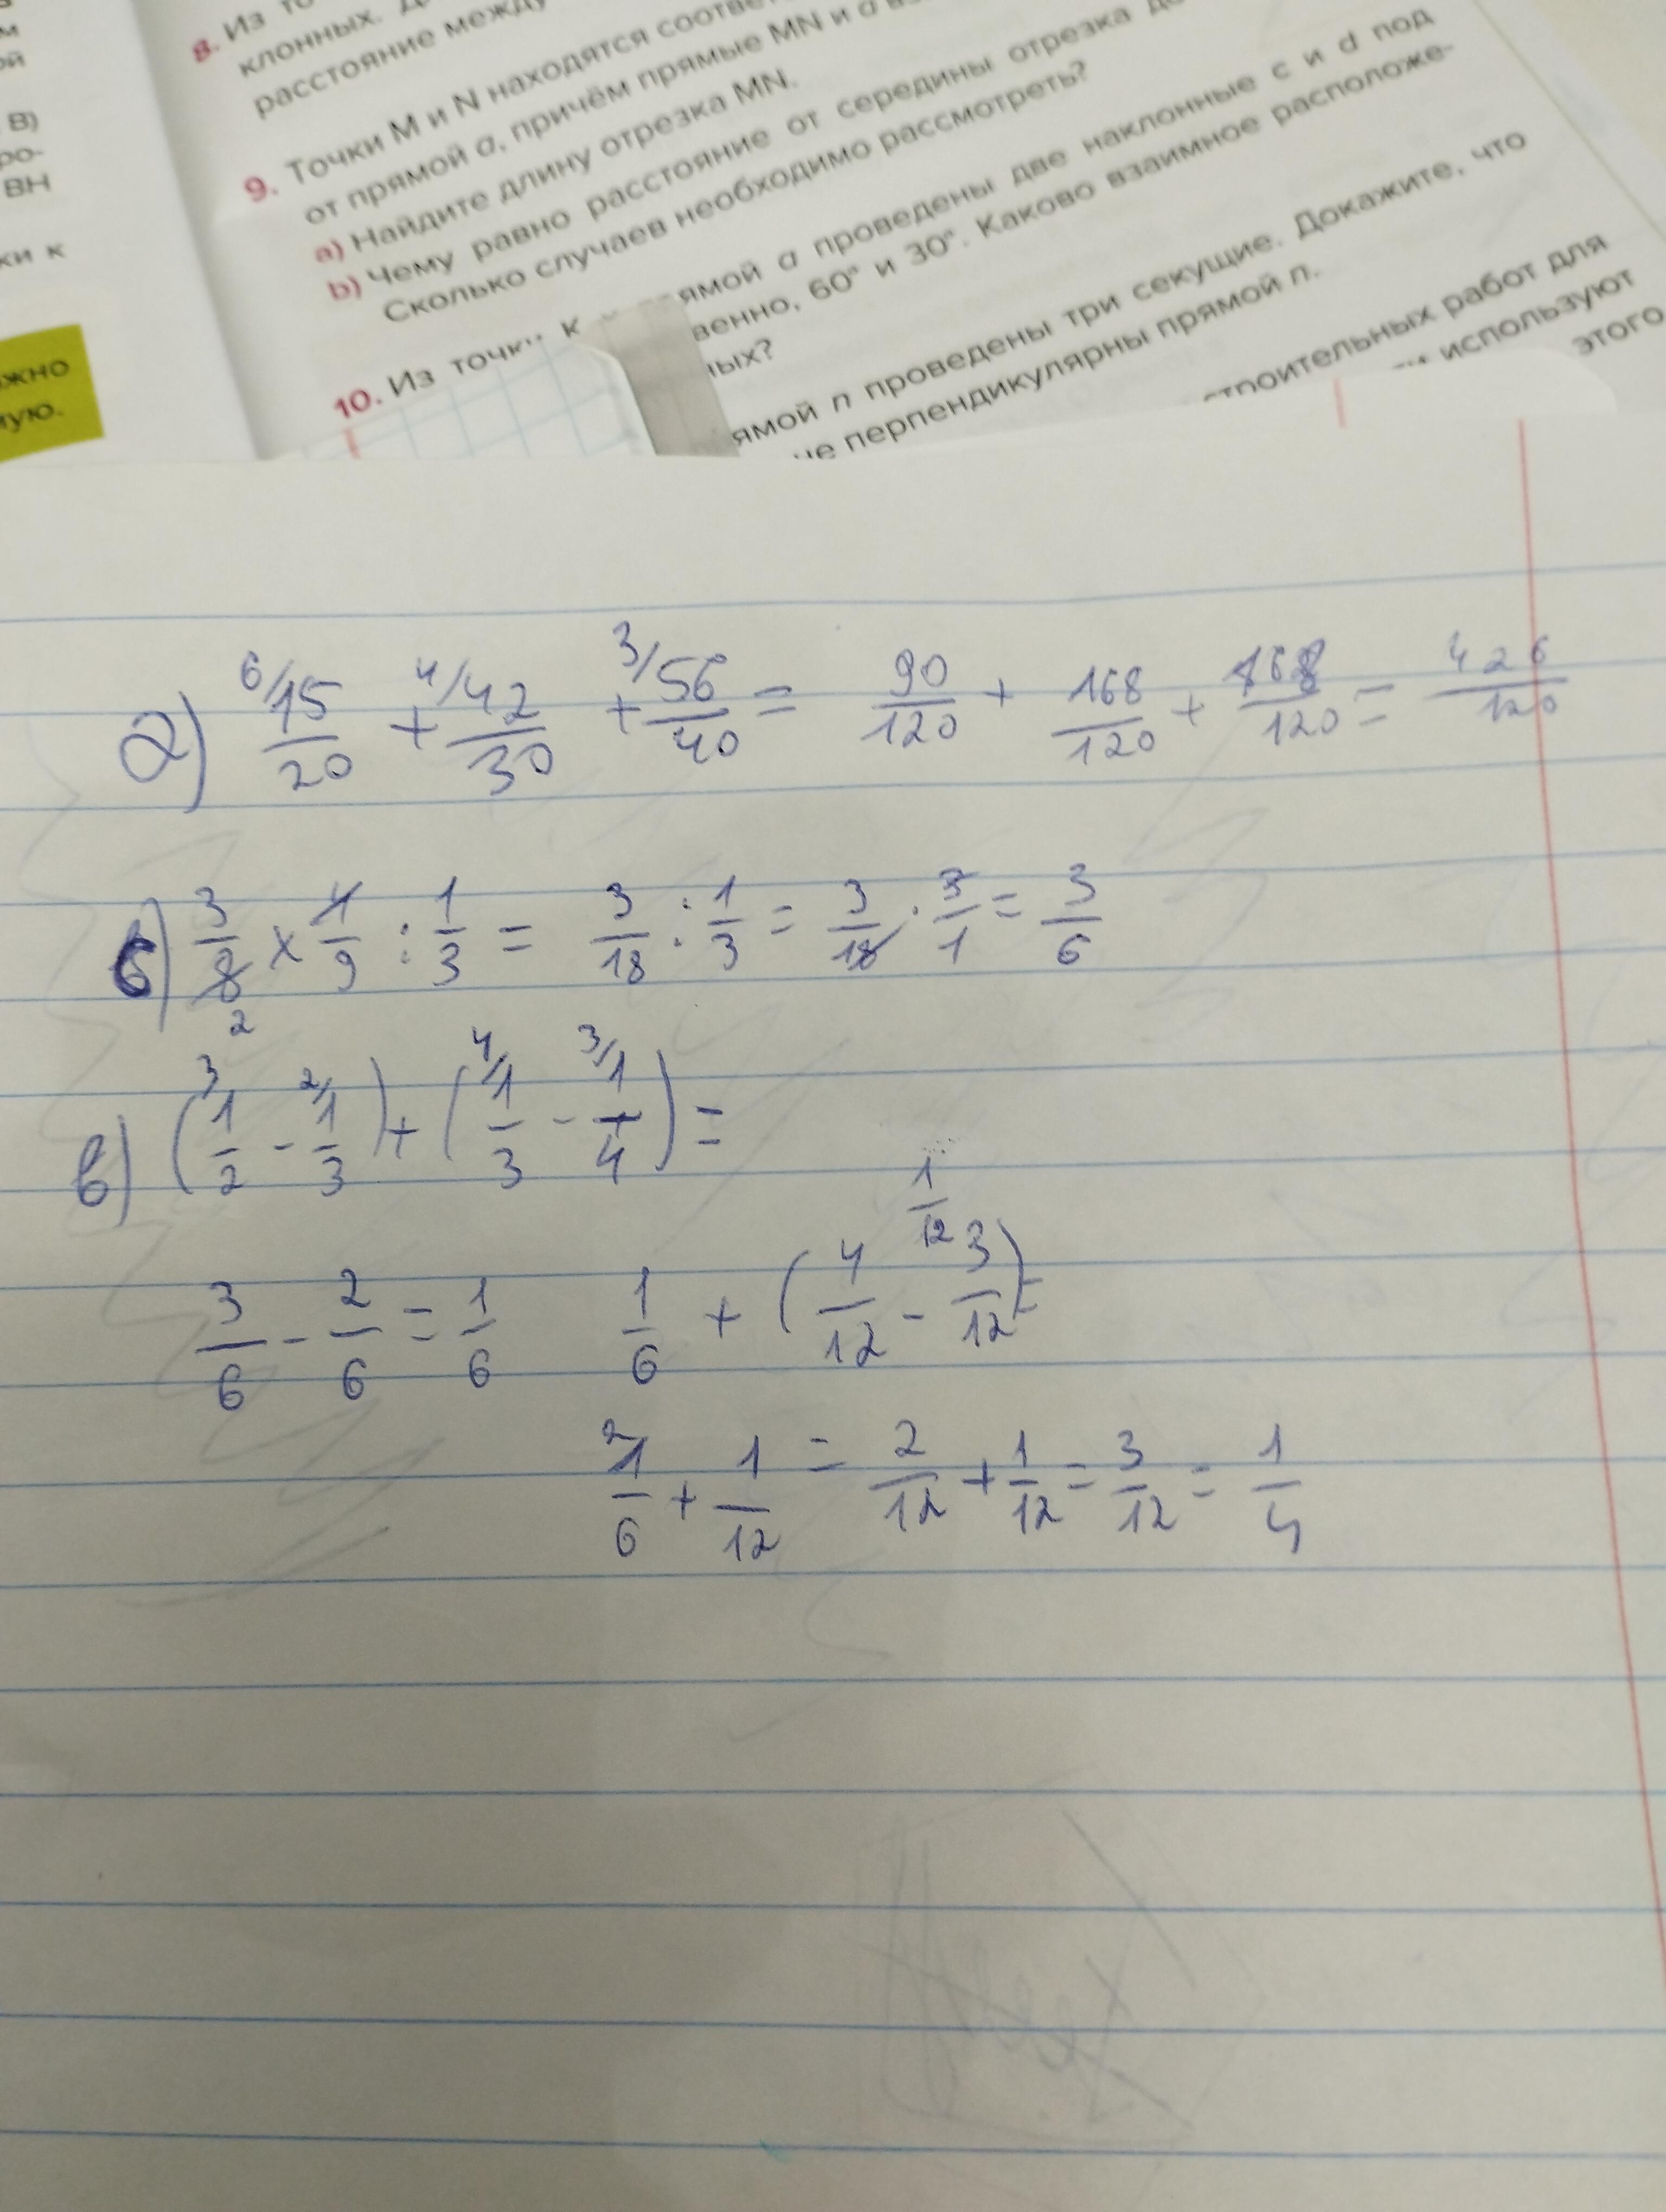 м
ой
В)
ро-
ВН
ки к
ожно
мую.
8. Из то
клонных.
расстояние между
9. Точки M и N находятся соотве
от прямой a, причём прямые MN и a
a) Найдите длину отрезка MN.
b) Чему равно расстояние от середины отрезка до
Сколько случаев необходимо рассмотреть?
10. Из точки К прямой a проведены две наклонные c и d под
венно, 60° и 30°. Каково взаимное расположе-
ных?
ямой n проведены три секущие. Докажите, что
не перпендикулярны прямой n.
строительных работ для
используют
этого
а) 6/15/20 + 4/42/30 + 3/56/40 = 90/120 + 168/120 + 168/120 = 426/120
б) 3/8 2 × 4/9 : 1/3 = 3/18 : 1/3 = 3/18 · 3/1 = 3/6
в) (3/1/2 - 2/1/3) + (4/1/3 - 3/1/4) =
1/12
3/6 - 2/6 = 1/6 1/6 + (4/12 - 3/12) =
2/1/6 + 1/12 = 2/12 + 1/12 = 3/12 = 1/4